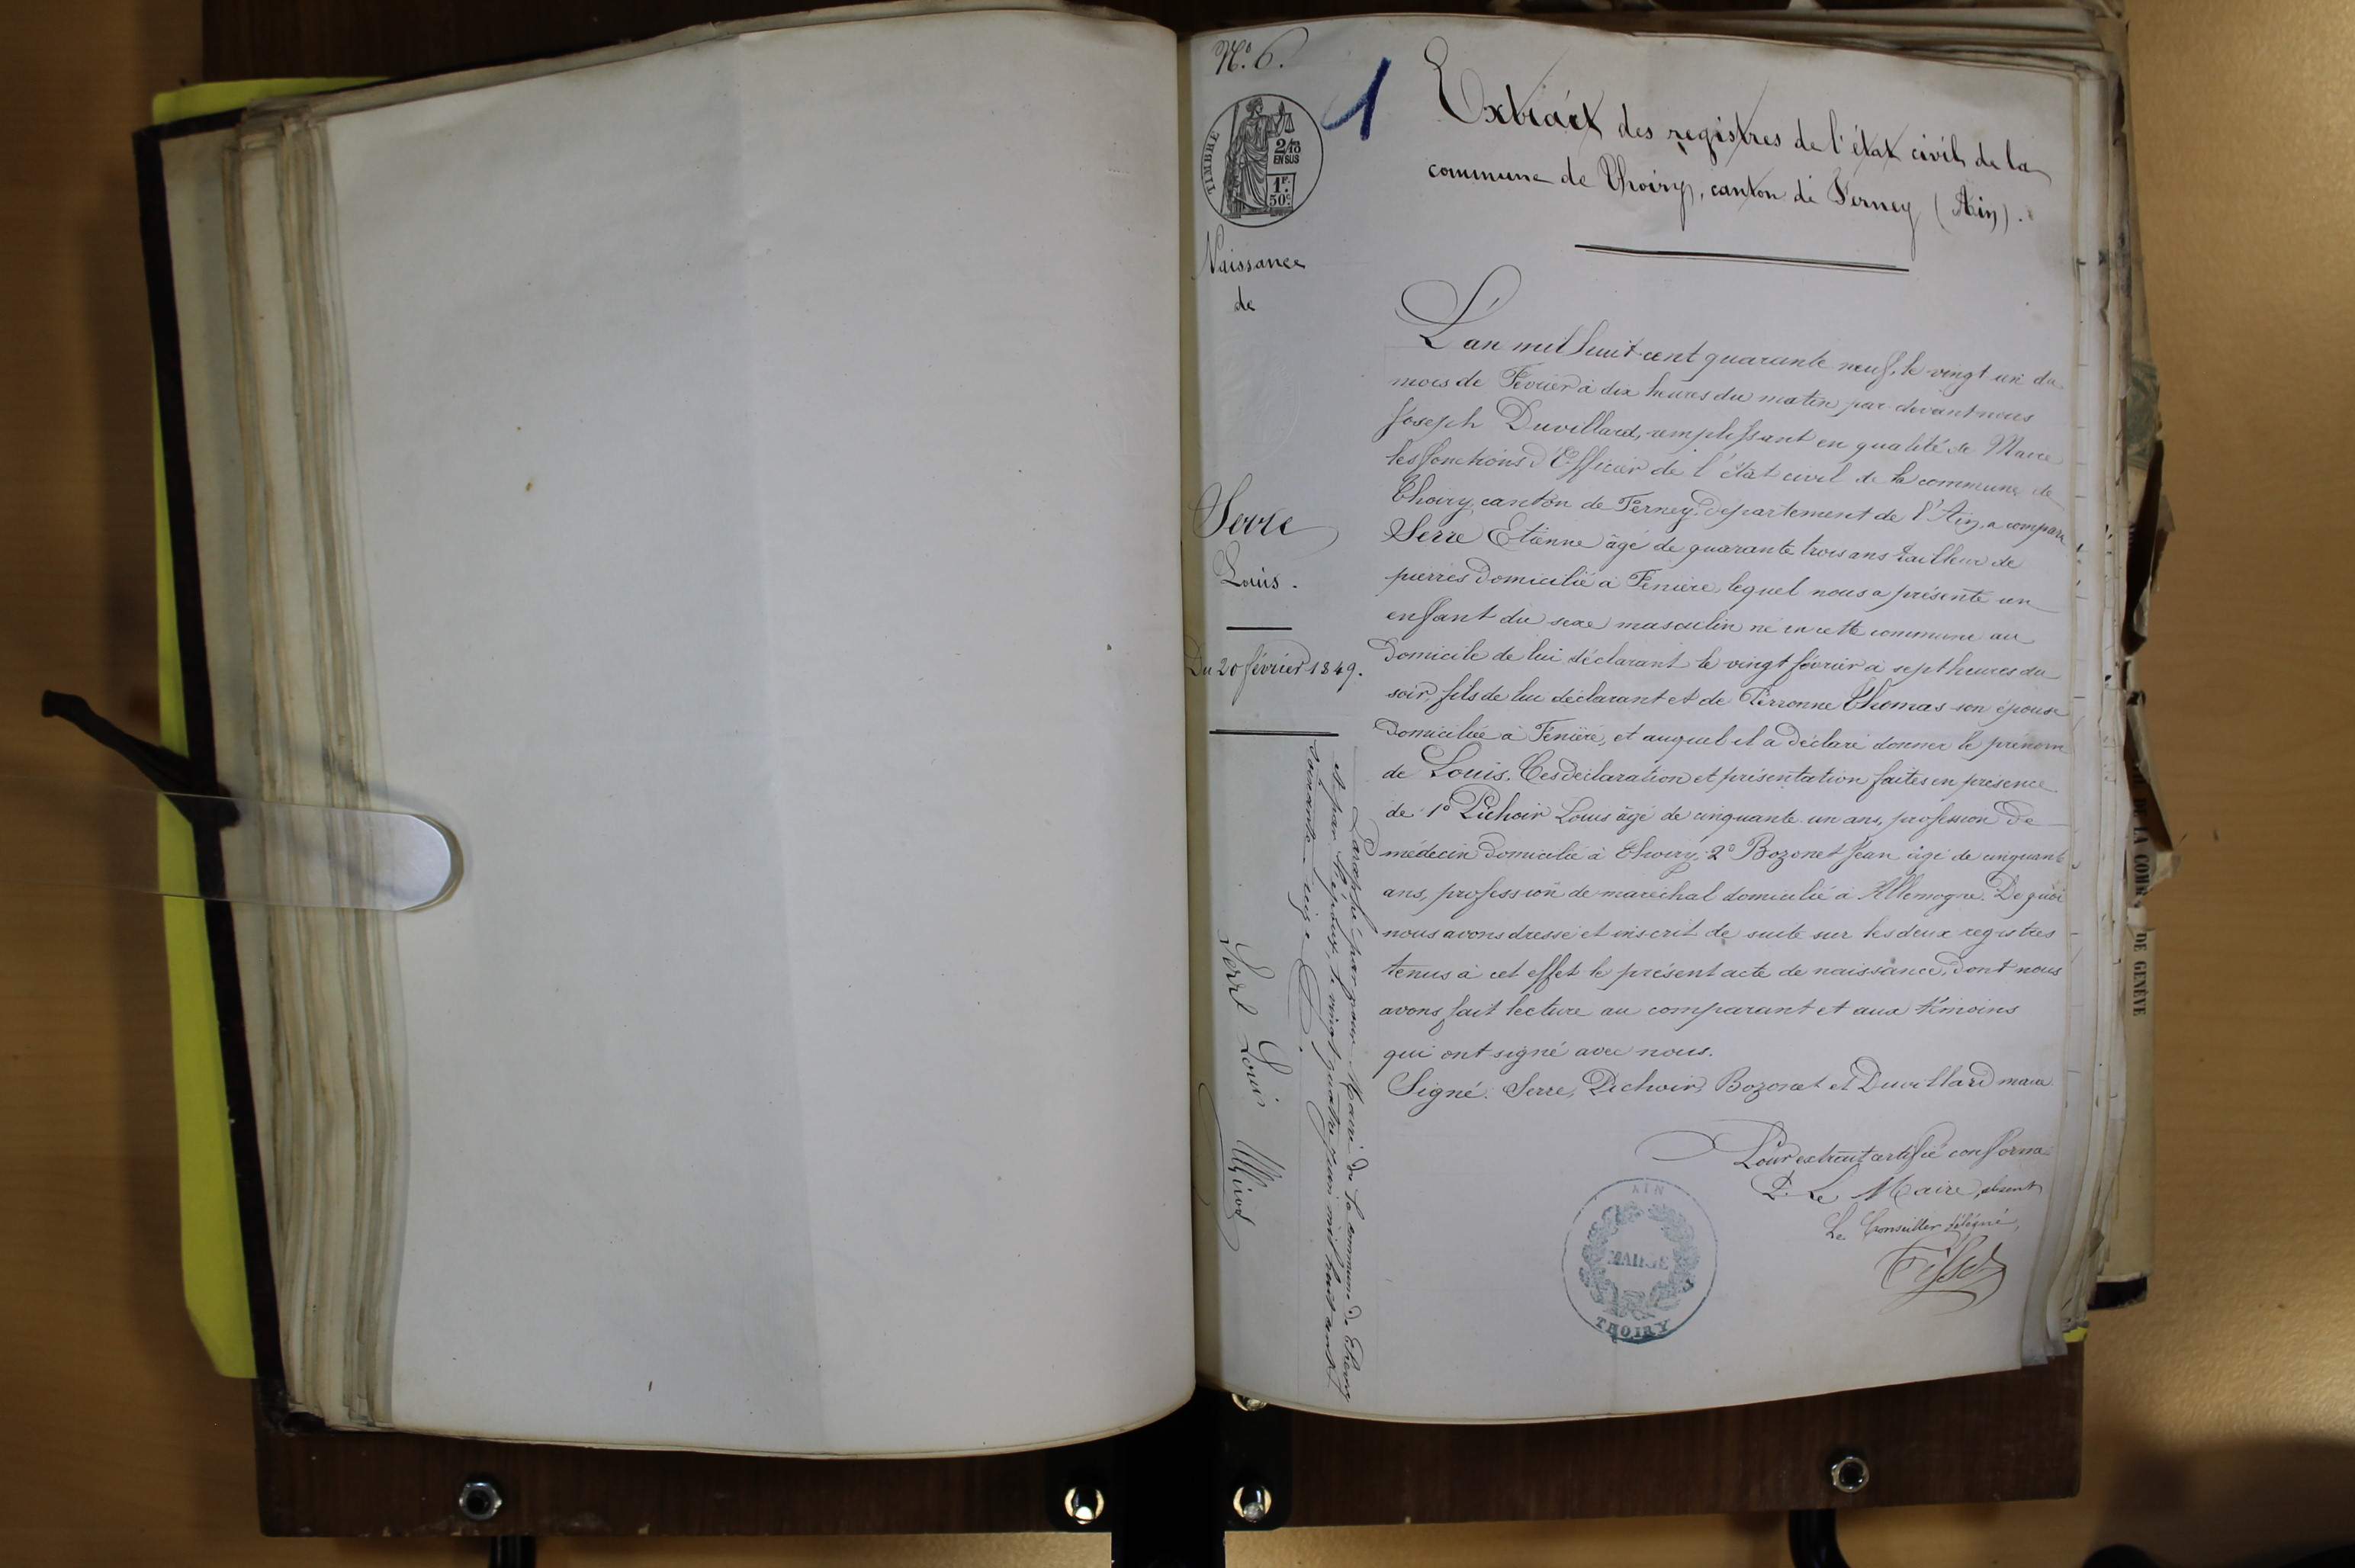 N° 6.
1
TIMBRE
2/10
EN SUS
1F.
50c.
Extrait des registres de l'état civil de la
commune de Thoiry, canton de Ferney (Ain).
Naissance
de
Serre
Louis.
Du 20 février 1849.
L'an mil huit cent quarante neuf, le vingt un du
mois de Février à dix heures du matin par devant nous
Joseph Duvillard, remplissant en qualité de Maire
les fonctions d'Officier de l'état civil de la commune de
Thoiry, canton de Ferney, département de l'Ain, a comparu
Serre Etienne âgé de quarante trois ans tailleur de
pierres domicilié à Fenière, lequel nous a présenté un
enfant du sexe masculin né en cette commune au
domicile de lui déclarant le vingt février à sept heures du
soir, fils de lui déclarant et de Pérronne Thomas son épouse
domiciliée à Fenière, et auquel il a déclaré donner le prénom
de Louis. Ces déclaration et présentation faites en présence
de 1° Pichoir Louis âgé de cinquante un ans, profession de
médecin domicilié à Thoiry, 2° Bozonet Jean âgé de cinquante
ans, profession de maréchal domicilié à Allemogne. De quoi
nous avons dressé et inscrit de suite sur les deux registres
tenus à cet effet le présent acte de naissance, dont nous
avons fait lecture au comparant et aux témoins
qui ont signé avec nous.
Signé: Serre, Pichoir, Bozonet et Duvillard maire
Pour extrait certifié conforme
P. Le Maire, absent
Le Conseiller délégué,
AIN
MAIRIE
THOIRY
Paraphé par nous Maire de la commune de Thoiry
et par l'époux, le vingt quatre juin mil huit cent
Serre Louis
DE LA COMM
DE GENÈVE